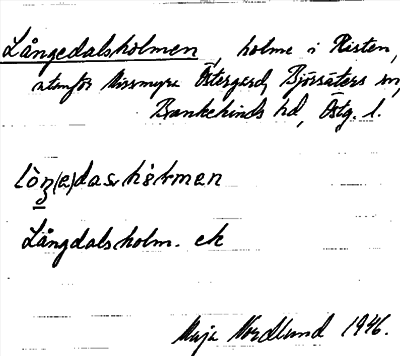 Långedalsholmen, holme i Risten,
utanför Missmyra Östergard, Björsäters sn,
Bankekinds hd, Östg. l.
lòŋ(e)dasholmen
Långdalsholm. ek
Maja Nordlund 1946.